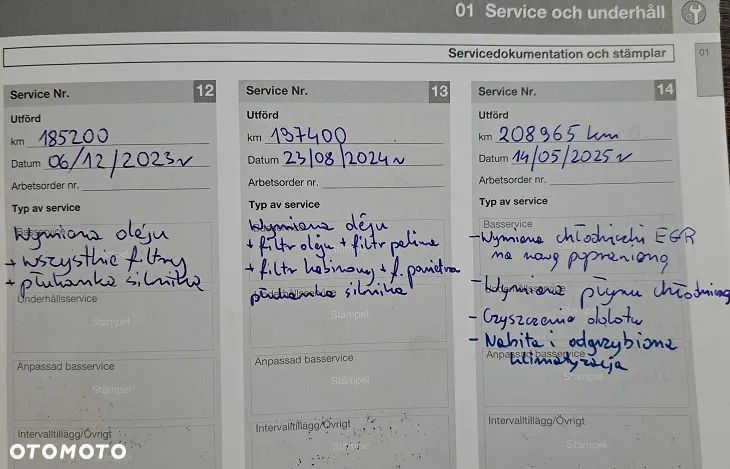 01 Service och underhåll
Servicedokumentation och stämplar
01
Service Nr. 12
Utförd
km 185200
Datum 06/12/2023r
Arbetsorder nr.
Typ av service
Basservice
Wymiana oleju
+ wszystkie filtry
+ płukanka silnika
Underhållsservice
Stämpel
Anpassad basservice
Stämpel
Intervalltillägg/Övrigt
Service Nr. 13
Utförd
km 197400
Datum 23/08/2024r
Arbetsorder nr.
Typ av service
Wymiana oleju
+ filtr oleju + filtr paliwa
+ filtr kabinowy + f. powietrza
płukanka silnika
Stämpel
Anpassad basservice
Stämpel
Intervalltillägg/Övrigt
Service Nr. 14
Utförd
km 208965 km
Datum 14/05/2025r
Arbetsorder nr.
Typ av service
Basservice
- Wymiana chłodniczki EGR
na nową poprawioną
- Wymiana płynu chłodniczego
- Czyszczenie dolotu
- Nabita i odgrzybiona
Anpassad basservice
klimatyzacja
Stämpel
Intervalltillägg/Övrigt
OTOMOTO